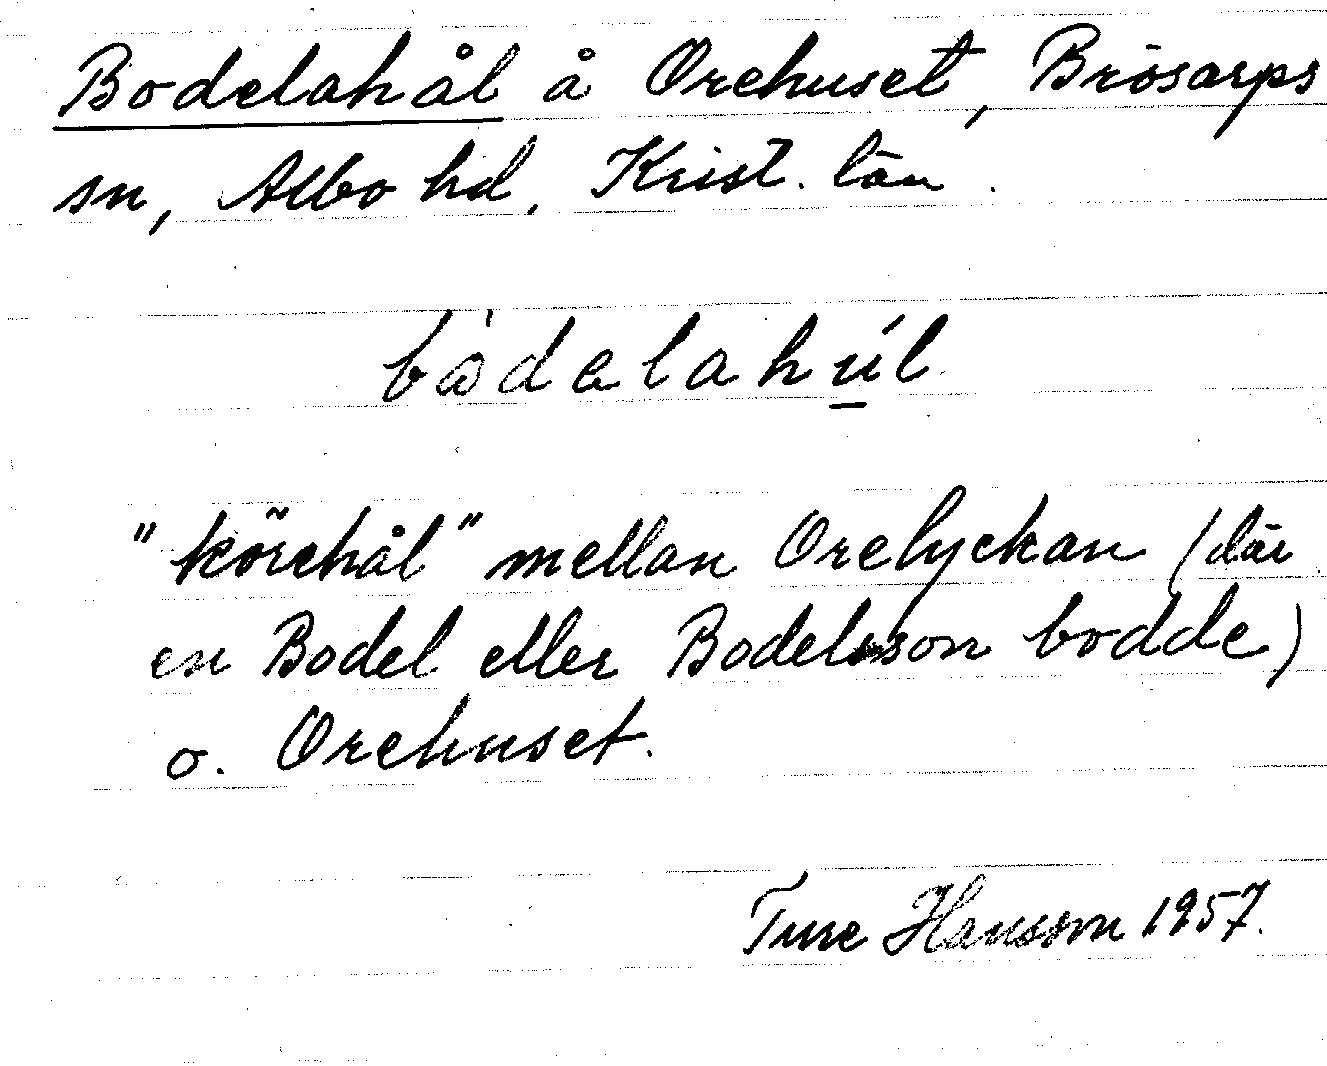 Bodelahål å Orehuset, Brösarps
sn, Albo hd, Krist. län.
bàdelahúl
"körehål" mellan Orelyckan (där
en Bodel eller Bodelsson bodde)
o. Orehuset.
Ture Hansson 1957.